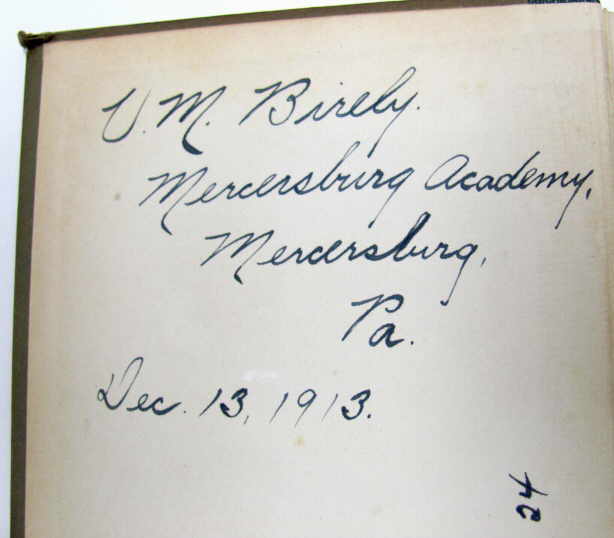 V. M. Birely.
Mercersburg Academy,
Mercersburg,
Pa.
Dec. 13, 1913.
24